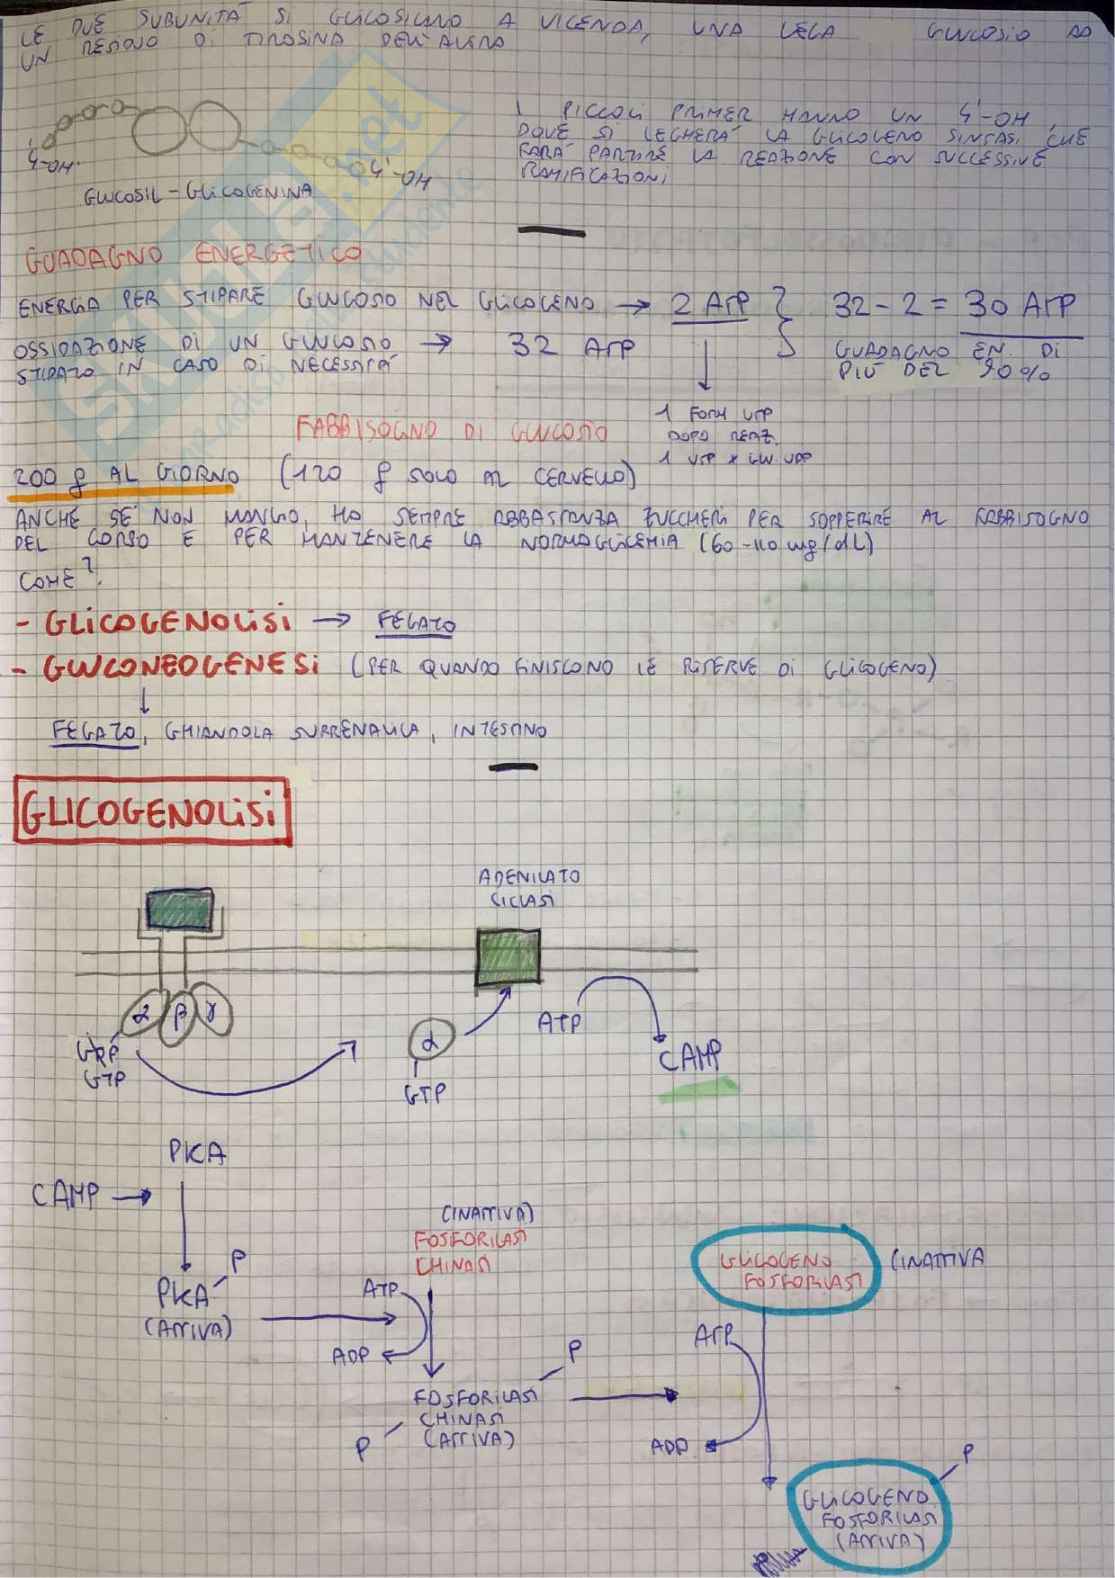 LE DUE SUBUNITÀ SI GLICOSILANO A VICENDA, UNA LEGA GLUCOSIO AD
UN RESIDUO DI TIROSINA DELL'ALTRA
4'-OH
4'-OH
GLUCOSIL-GLICOGENINA
I PICCOLI PRIMER HANNO UN 4'-OH,
DOVE SI LEGHERÀ LA GLICOGENO SINTASI, CHE
FARÀ PARTIRE LA REAZIONE CON SUCCESSIVE
RAMIFICAZIONI
GUADAGNO ENERGETICO
ENERGIA PER STIPARE GLUCOSIO NEL GLICOGENO → 2 ATP } 32-2 = 30 ATP
OSSIDAZIONE DI UN GLUCOSIO → 32 ATP
STIPATO IN CASO DI NECESSITÀ
GUADAGNO EN. DI
PIÙ DEL 90%
1 FORM UTP
DOPO REAZ.
1 UTP x GLU UDP
FABBISOGNO DI GLUCOSIO
200 g AL GIORNO (120 g SOLO AL CERVELLO)
ANCHE SE NON MANGIO, HO SEMPRE ABBASTANZA ZUCCHERI PER SOPPERIRE AL FABBISOGNO
DEL CORSO E PER MANTENERE LA NORMOGLICEMIA (60-110 mg/dL)
COME?
- GLICOGENOLISI → FEGATO
- GLUCONEOGENESI (PER QUANDO FINISCONO LE RISERVE DI GLICOGENO)
FEGATO, GHIANDOLA SURRENALICA, INTESTINO
GLICOGENOLISI
ADENILATO
CICLASI
α β γ
GTP
α
GTP
ATP
CAMP
PKA
CAMP →
PKA P
(ATTIVA)
(INATTIVA)
FOSFORILASI
CHINASI
ATP
ADP
FOSFORILASI P
CHINASI
P (ATTIVA)
GLICOGENO (INATTIVA
FOSFORILASI
ATP
ADP
P
GLICOGENO
FOSFORILASI
(ATTIVA)